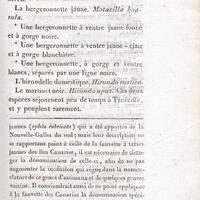 La bergeronnette jaune. Motacilla boa-
rula.
* Une bergeronnette à ventre jaune foncé
et à gorge noire.
* Une bergeronnette à ventre jaune-clair
et à gorge blanchâtre.
* Une bergeronnette, à gorge et ventre
blancs, séparés par une ligne noire.
L'hirondelle domestique. Hirundo rustica.
Le martinet noir. Hirundo apus. Ces deux
espèces séjournent peu de temps à Ténériffe,
et y peuplent rarement.
jaunes (sylvia rubricata) qui a été apportée de la
Nouvelle-Galles du sud; mais leur description ne
se rapportant point à celle de la fauvette à tarses
jaunes des îles Canaries, il est nécessaire de chan-
ger la dénomination de celle-ci, afin de ne pas
augmenter la confusion qui règne dans la nomen-
clature de ce genre d'animaux et de quelques autres
genres. Il conviendrait aussi de ne point appliquer
à la fauvette des Canaries la dénomination spéci-